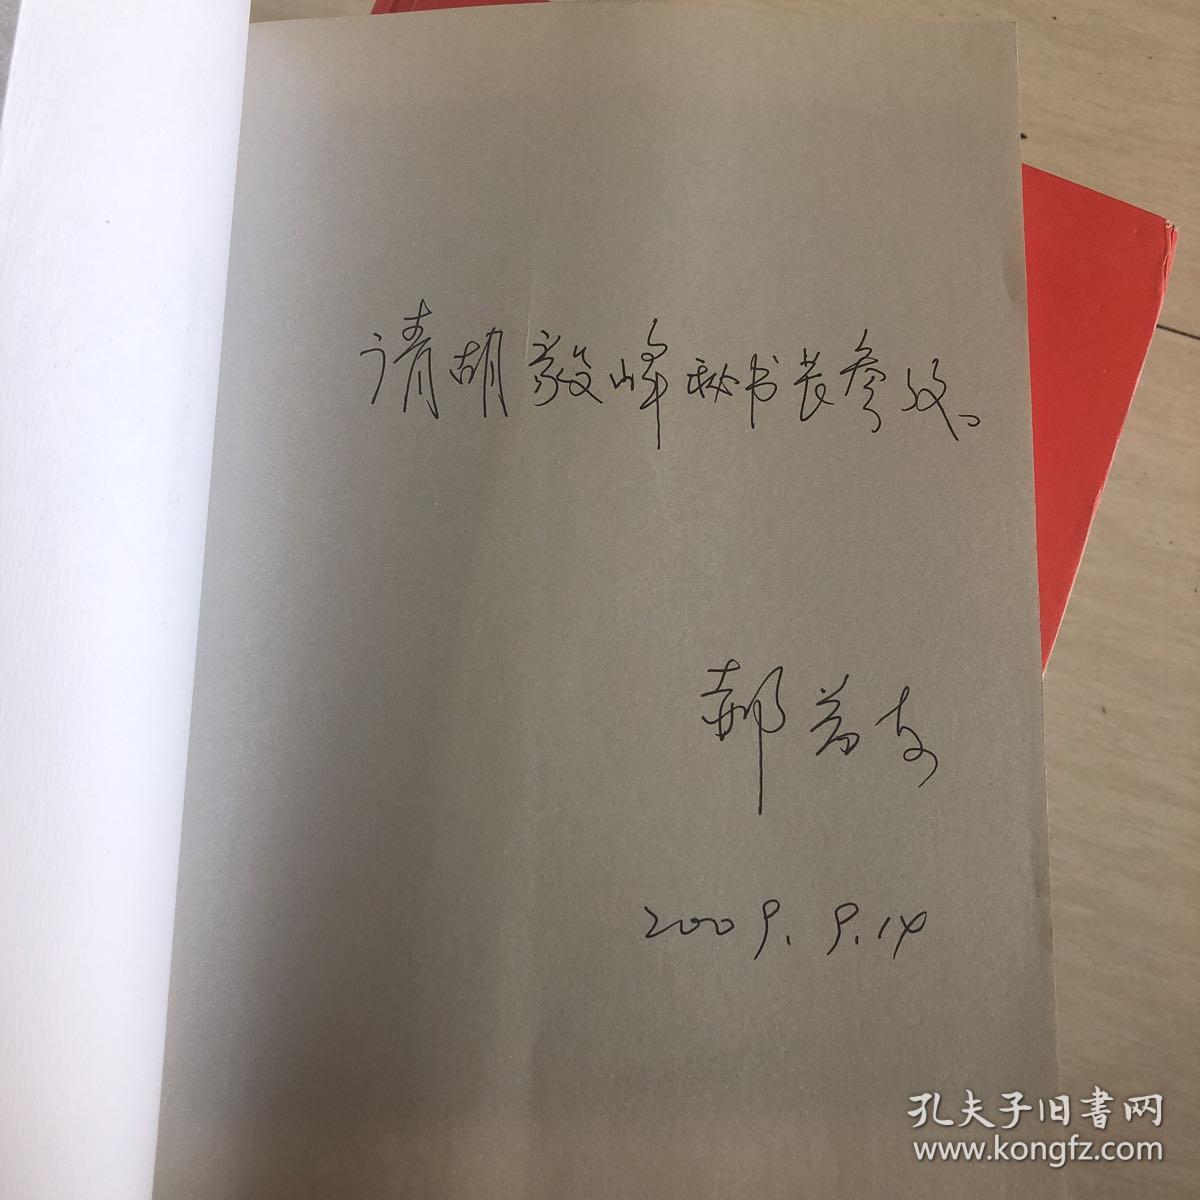 请胡毅峰秘书长参考。
郝益东
2009.9.14
孔夫子旧書网
www.kongfz.com